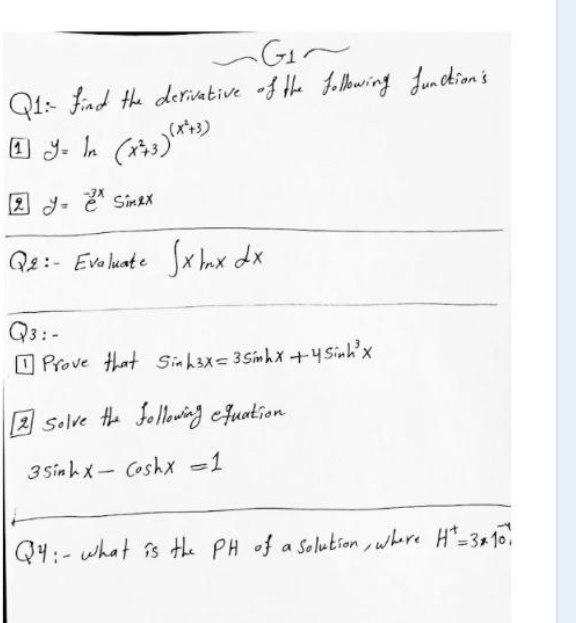 G1
Q1:- find the derivative of the following function's
1 y = ln (x²+3)^(x²+3)
2 y = e^-3x Sin2x
Q2:- Evaluate ∫x lnx dx
Q3:-
1 Prove that Sinh3x = 3Sinhx + 4Sinh³x
2 Solve the following equation
3Sinhx - Coshx = 1
Q4:- what is the PH of a solution, where H⁺ = 3*10